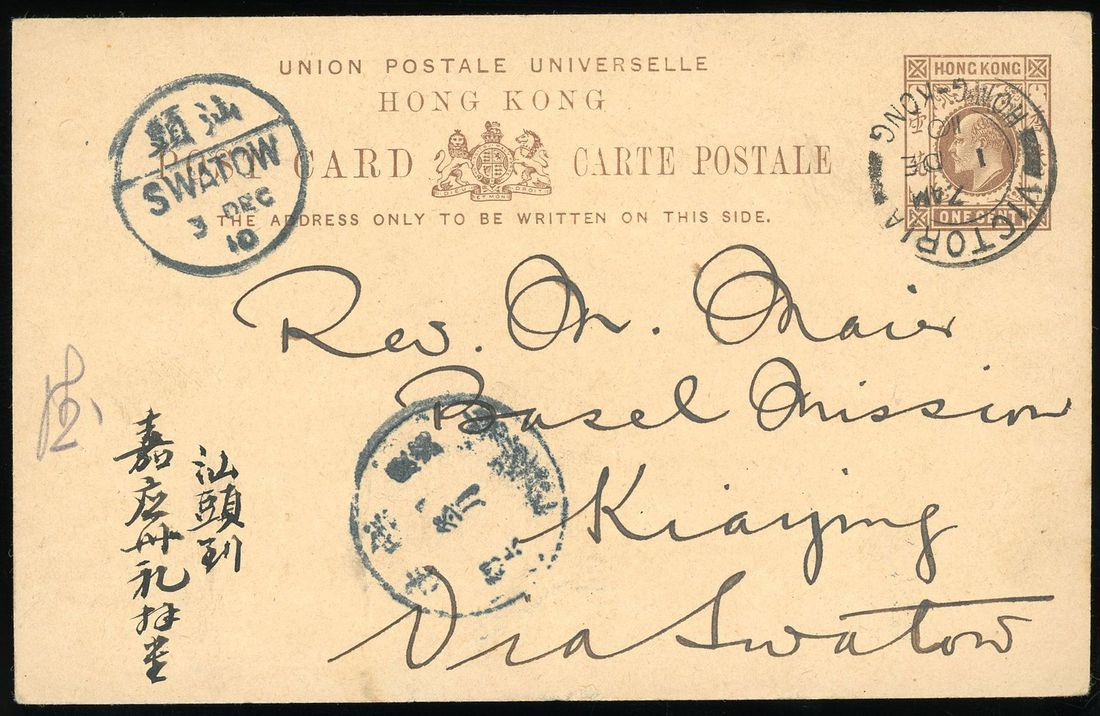 UNION POSTALE UNIVERSELLE
HONG KONG
POST CARD CARTE POSTALE
DIEU ET MON DROIT
THE ADDRESS ONLY TO BE WRITTEN ON THIS SIDE.
HONG KONG
ONE CENT
VICTORIA
HONG-KONG
7 AM
1 DE
10
頭汕
SWATOW
3 DEC
10
Rev. M. Maier
Basel Mission
Kiaying
Via Swatow
汕頭到
嘉应州礼拜堂